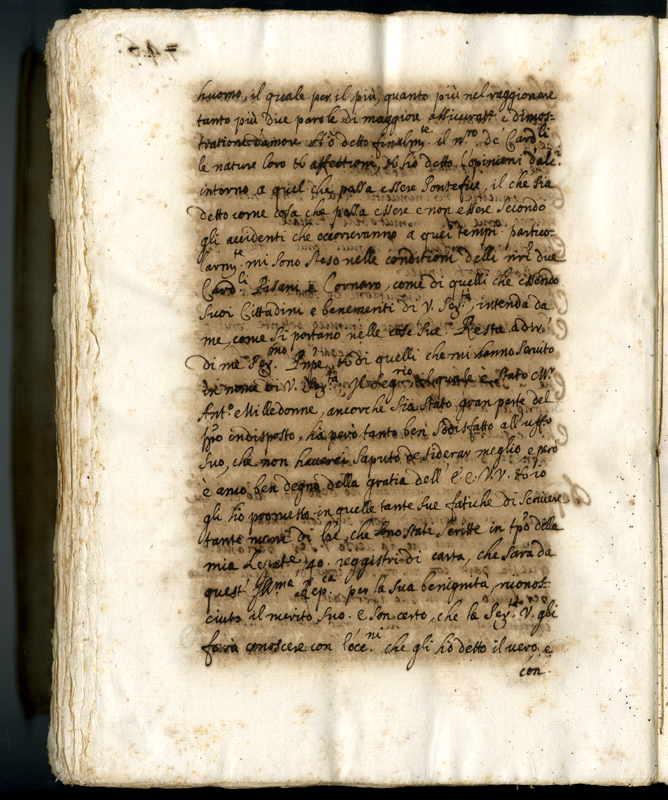 huomo, il quale per il più, quanto più nel raggionare
tanto più due parole di maggiore assicurate e dimos-
trationi d'amore. Hò detto finalm.te il n.ro de' Card.li
le nature loro et affettioni, et hò detto l'opinioni
intorno a quel che possa essere Pontefice, il che sia
detto come cosa che possa essere e non essere secondo
gli accidenti che occorreranno a quei tempi. partico-
larm.te mi sono steso nelle conditioni delli n.ri due
Card.li Pisani e Cornaro, come di quelli che essendo
suoi Cittadini e benemeriti di V. Ser.tà, intenda da
me, come si portano nelle cose sue. Resta a dir
di me Ser.mo Prñpe, et di quelli che mi hanno servito
in nome di V. Ser.tà. Il Seg.rio il quale è stato M.r
Ant.o Milledonne, ancorche sia stato gran parte del
tpo indisposto, hà però tanto ben sodisfatto all'uffo
suo, che non haverei saputo desiderar meglio e però
è anco ben degno della gratia dell' E.E. V.V. et io
gli hò promessa in quelle tante sue fatiche di scrivere
tante numero di lre, che sono state scritte in tpo della
mia Legate 40. reggistri di carta, che sarà da
quest' Ill.ma Rep.ca per la sua benignità, riconos-
ciuto il merito suo. e son certo, che la Ser.tà V. gli
farà conoscere con l'occ.ni che gli hò detto il vero, e
con